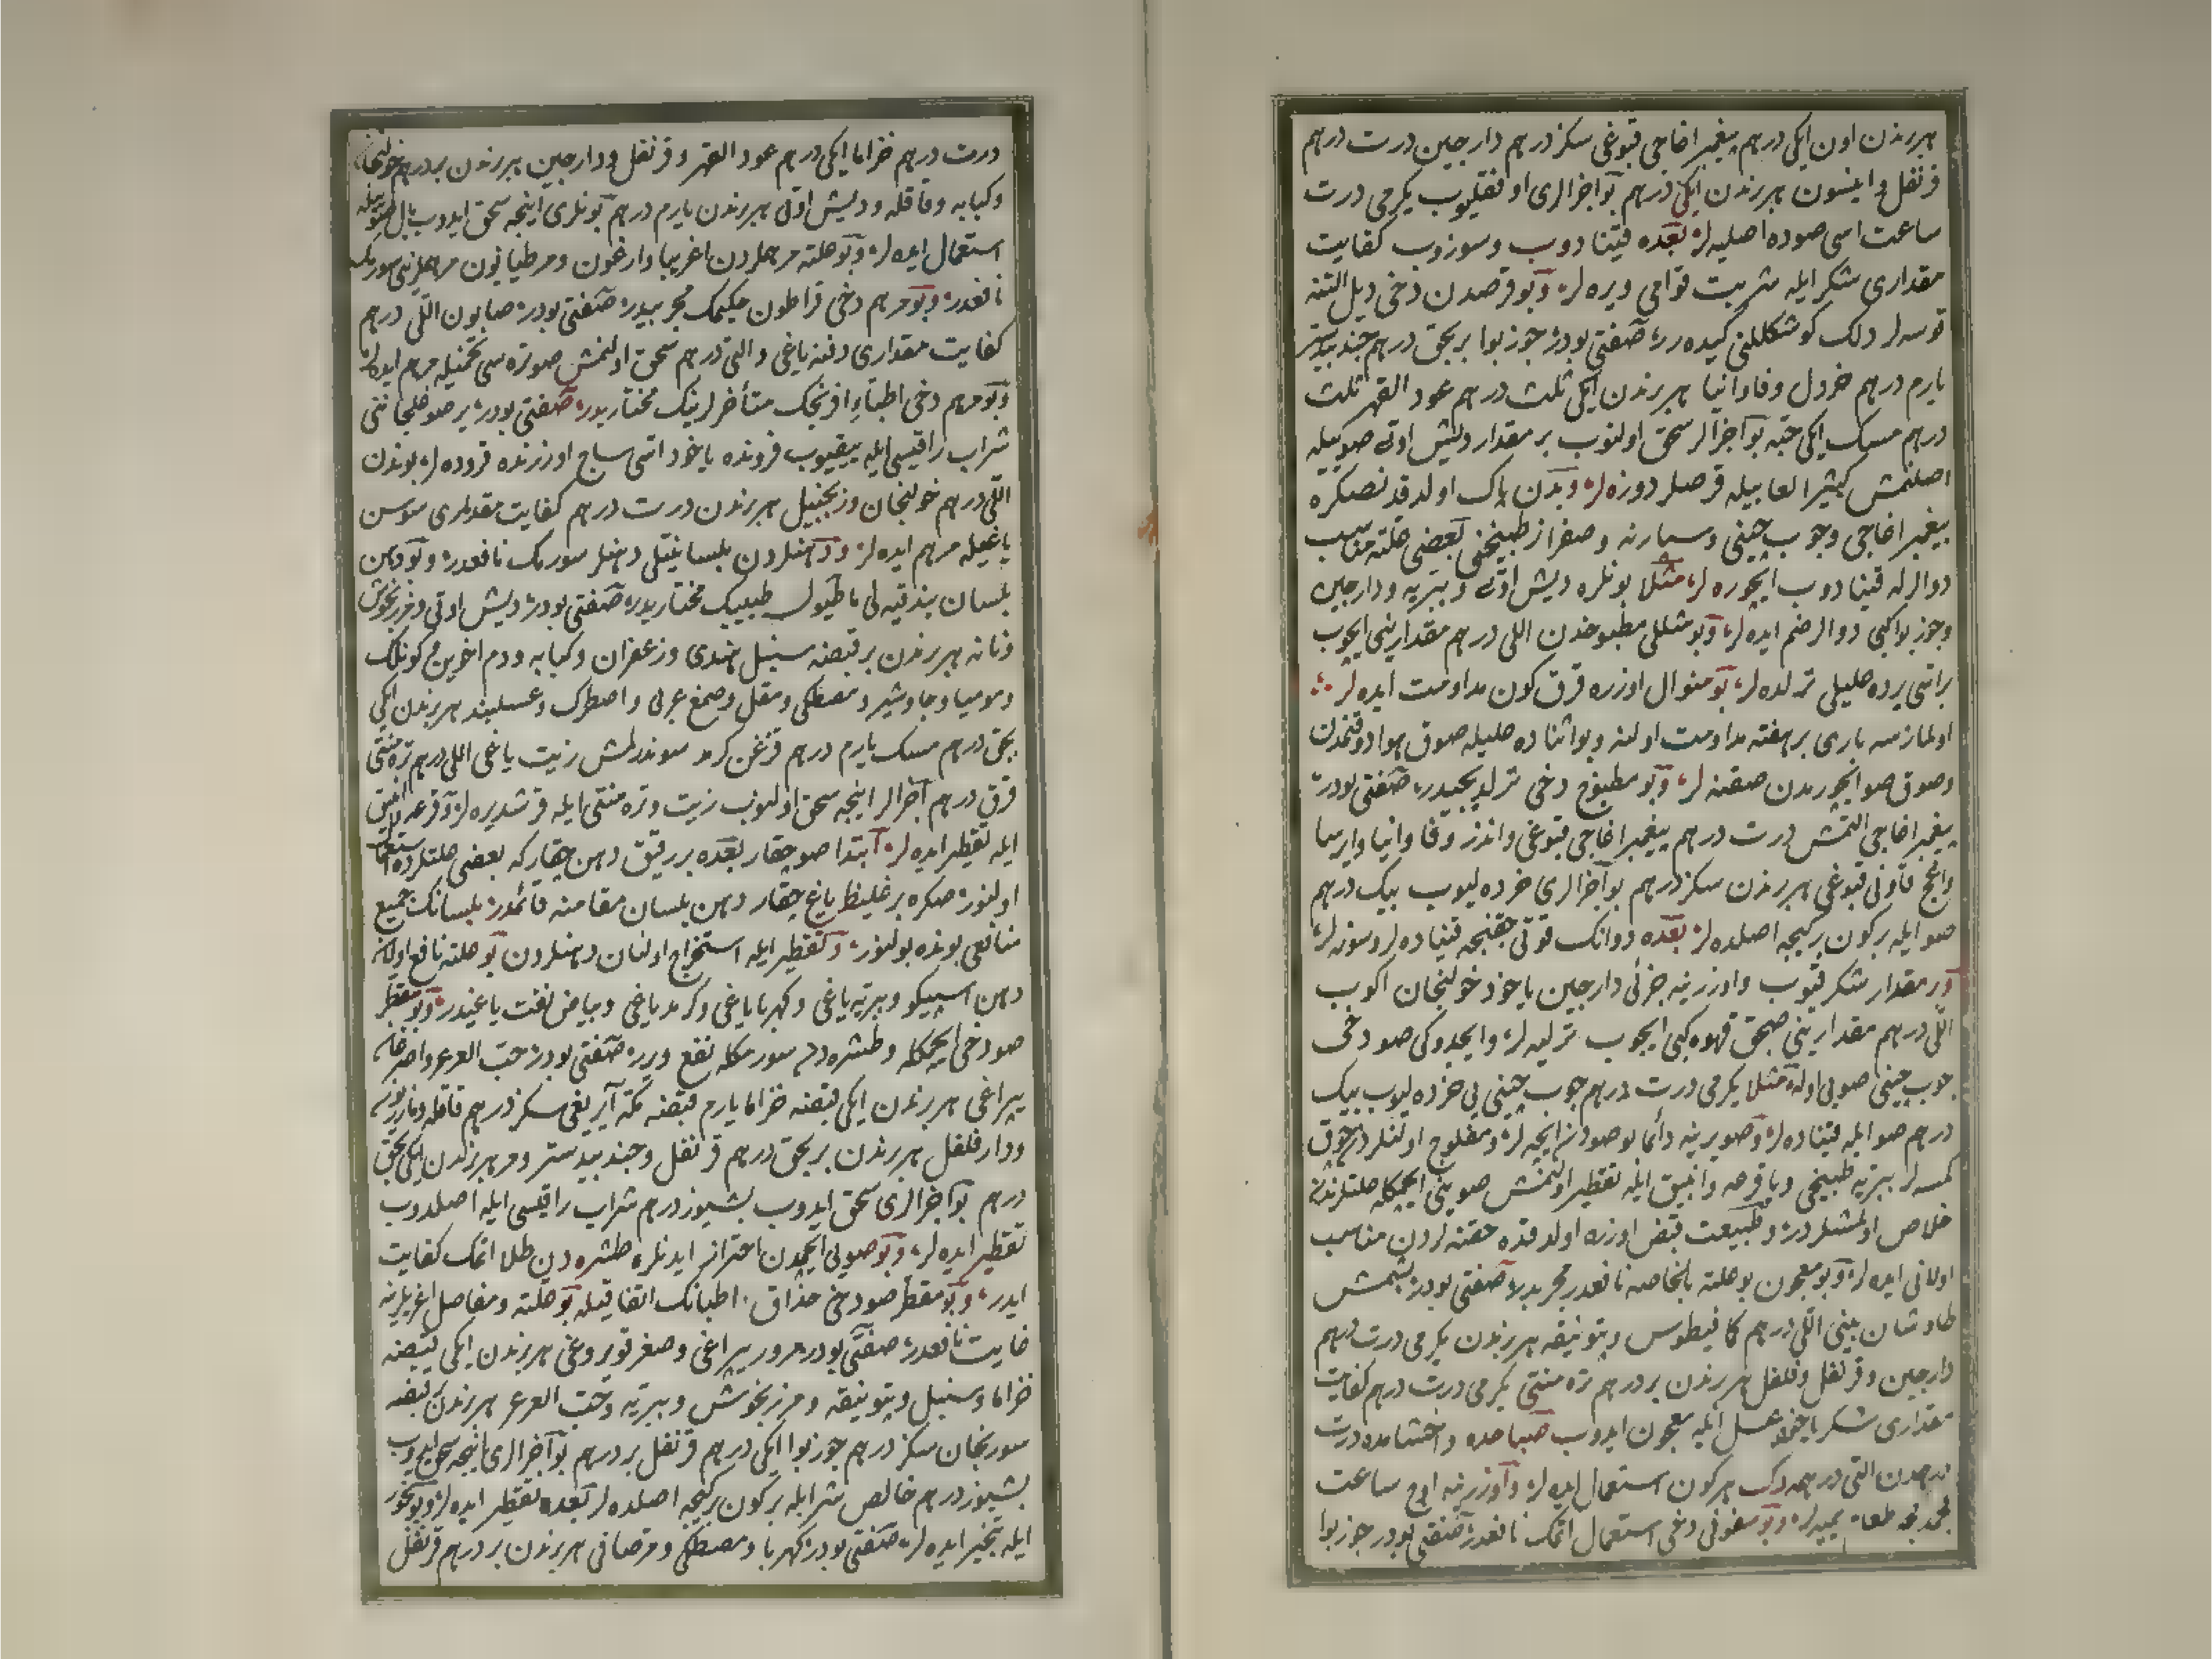 هر برندن اون ایکی درهم پیغمبر اغاجی قبوغی سکز درهم دارجین درت درهم
قرنفل و انیسون هر برندن ایکی درهم بو اجزالری اوفقلیوب یکرمی درت
ساعت اسی صوده اصلیه‌لر بعده قینادوب و سوزوب کفایت
مقداری شکر ایله شربت قوامی ویره‌لر و بو قرصدن دخی دیل التنه
قوسه‌لر دلک کوشکللکنی کیده‌رر صنعتی بودر جوزبوا بر بچق درهم جندبیدستر
یارم درهم خردل و فاوانیا هر برندن ایکی ثلث درهم عود القهر ثلث
درهم مسک ایکی حبه بو اجزالر سحق اولنوب بر مقدار دلیش اوتی صوییله
اصلنمش کثیرا لعابیله قرصلر دوزه‌لر و بدن پاک اولدقدنصکره
پیغمبر اغاجی و چوب چینی و سپارنه و صفراز طبیخنی بعضی علته مناسب
دوالرله قینادوب ایچوره‌لر مثلا بونلره دیش اوتی و بتریه و دارجین
و جوزبوا کبی دوالر ضم ایده‌لر و بو شکللی مطبوخدن اللی درهم مقدارینی ایچوب
براسی یرده علیلی ترلده‌لر بو منوال اوزره قرق کون مداومت ایده‌لر
اولمازسه باری بر هفته مداومت اولنه و بو اثناده علیله صوق هوا دوقنمدن
و صوق صو ایچورمدن صقنه‌لر و بو مطبوخ دخی ترلدیجیدر صنعتی بودر
پیغمبر اغاجی التمش درت درهم پیغمبر اغاجی قبوغی و اندز و فاوانیا و ایرسا
و اغج قاونی قبوغی هر برندن سکز درهم بو اجزالری خرده‌لیوب بیک درهم
صو ایله بر کون بر کیجه اصلده‌لر بعده دوانک قوتی چقنجه قیناده‌لر و سوزه‌لر
و بر مقدار شکر قیوب و اوزرینه جزئی دارجین یاخود خولنجان اکوب
اللی درهم مقدارینی صیجق قهوه کبی ایچوب ترلیه‌لر و ایچدوکی صو دخی
چوب چینی صویی اوله مثلا یکرمی درت درهم چوب چینی یی خرده‌لیوب بیک
درهم صو ایله قیناده‌لر و صو یرینه دائما بو صودن ایچه‌لر و مفلوج اولنلردن چوق
کمسه‌لر بتریه طبیخی و یا قرعه و انبیق ایله تقطیر اولنمش صوینی ایچمکله علتلرندن
خلاص اولمشلردر و طبیعت قبض اوزره اولدقده حقنه‌لردن مناسب
اولانی ایده‌لر و بو معجون بو علته بالخاصه نافعدر مجربدر صنعتی بودر بشمش
طاوشان بینی اللی درهم کافیطوس و بتونیقه هر برندن یکرمی درت درهم
دارجین و قرنفل و فلفل هر برندن بر درهم تره منتی یکرمی درت درهم کفایت
مقداری شکر یاخود عسل ایله معجون ایدوب صباحده و اخشامده درت
درهمدن التی درهمه دک هر کون استعمال ایده‌لر و اوزرینه اوچ ساعت
کچمدنجه طعام یمیه‌لر و بو سفوفی دخی استعمال اتمک نافعدر صنعتی بودر جوزبوا
درت درهم خزاما ایکی درهم عود القهر و قرنفل و دارجین هر برندن بر درهم خولنجان
و کبابه و قاقله و دلیش اوتی هر برندن یارم درهم بونلری اینجه سحق ایدوب بال صوییله
استعمال ایده‌لر و بو علته مرهملردن اغریبا و ارغون و مرطیاتون مرهملرینی سورمک
نافعدر و بو مرهم دخی قراطون حکیمک مجربیدر صنعتی بودر صابون اللی درهم
کفایت مقداری دفنه یاغی و التی درهم سحق اولنمش صو تره‌سی تخمیله مرهم ایده‌لر
و بو مرهم دخی اطباء افرنجک متأخرلرینک مختاریدر صنعتی بودر بر صوغلجاننی
شراب راقیسی ایله ییقیوب فرونده یاخود اسی ساج اوزرنده قروده‌لر بوندن
اللی درهم خولنجان و زنجبیل هر برندن درت درهم کفایت مقداری سوسن
یاغیله مرهم ایده‌لر و دهنلردن بلسانیتلی دهنلر سورمک نافعدر و بو دهن
بلسان بندقیه‌لی ماطیول طبیبک مختاریدر صنعتی بودر دیش اوتی و مرزنجوش
و نانه هر برندن بر قبضه سنبل هندی و زعفران و کبابه و دم اخوین و کونلک
و مومیا و جاوشیر و مصطکی و مقل و صمغ عربی و اصطرک و عسلبند هر برندن ایکی
بچق درهم مسک یارم درهم قزغن کرمد سوندرلمش زیت یاغی اللی درهم تره منتی
قرق درهم اجزالر اینجه سحق اولنوب زیت و تره منتی ایله قرشدیره‌لر و قرعه انبیق
ایله تقطیر ایده‌لر ابتدا صو چقار بعده بر رقیق دهن چقار که بعضی علتلرده استعمال
اولنور صکره بر غلیظ یاغ چقار دهن بلسان مقامنه قائمدر بلسانک جمیع
منافعی بونده بولنور و تقطیر ایله استخراج اولنان دهنلردن بو علته نافع اولان
دهن اسپیکو و بتریه یاغی و کهربا یاغی و کرمد یاغی و بیاض نفت یاغیدر و بو مقطر
صو دخی ایچمکله و طشره‌دن سورمکله نفع ویرر صنعتی بودر حب العرعر و اضرغان
یپراغی هر برندن ایکی قبضه خزاما یارم قبضه مکه ایریغی سکز درهم قاقله و نارپوست
و دارفلفل هر برندن بر بچق درهم قرنفل و جندبیدستر و مر هر برندن ایکی بچق
درهم بو اجزالری سحق ایدوب بشیوز درهم شراب راقیسی ایله اصلدوب
تقطیر ایده‌لر و بو صویی ایچمدن احتراز ایدنلره طشره‌دن طلا اتمک کفایت
ایدر و بو مقطر صو دخی حذاق اطبانک اتفاقیله بو علته و مفاصل اغریلرینه
غایت نافعدر صنعتی بودر مرور یپراغی و صغر قویروغی هر برندن ایکی قبضه
خزاما و سنبل و بتونیقه و مرزنجوش و بتریه و حب العرعر هر برندن بر قبضه
سورنجان سکز درهم جوزبوا ایکی درهم قرنفل بر درهم بو اجزالری اینجه سحق ایدوب
بشیوز درهم خالص شراب ایله بر کون بر کیجه اصلده‌لر بعده تقطیر ایده‌لر و بو بخور
ایله تبخیر ایده‌لر صنعتی بودر کهربا و مصطکی و مرصافی هر برندن بر درهم قرنفل